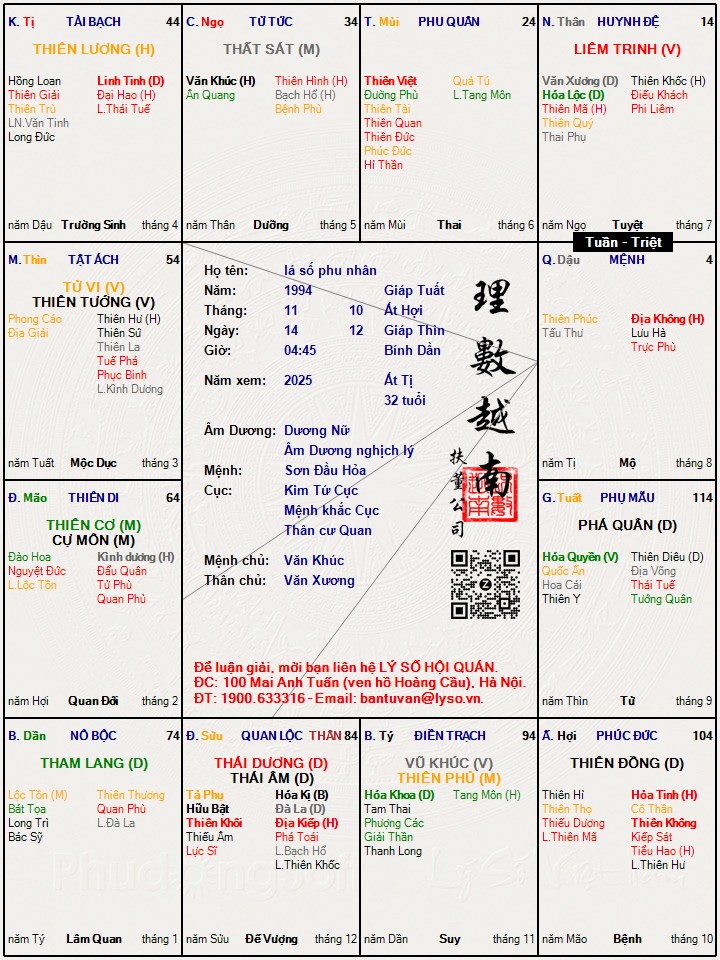 K. Tị TÀI BẠCH 44
THIÊN LƯƠNG (H)
Hồng Loan Linh Tinh (D)
Thiên Giải Đại Hao (H)
Thiên Trù L.Thái Tuế
LN.Văn Tinh
Long Đức
năm Dậu Trường Sinh tháng 4
C. Ngọ TỬ TỨC 34
THẤT SÁT (M)
Văn Khúc (H) Thiên Hình (H)
Ân Quang Bạch Hổ (H)
Bệnh Phù
năm Thân Dưỡng tháng 5
T. Mùi PHU QUÂN 24
Thiên Việt Quả Tú
Đường Phù L.Tang Môn
Thiên Tài
Thiên Quan
Thiên Đức
Phúc Đức
Hỉ Thần
năm Mùi Thai tháng 6
N. Thân HUYNH ĐỆ 14
LIÊM TRINH (V)
Văn Xương (D) Thiên Khốc (H)
Hóa Lộc (D) Điếu Khách
Thiên Mã (H) Phi Liêm
Thiên Quý
Thai Phụ
năm Ngọ Tuyệt tháng 7
Tuần - Triệt
M. Thìn TẬT ÁCH 54
TỬ VI (V)
THIÊN TƯỚNG (V)
Phong Cáo Thiên Hư (H)
Địa Giải Thiên Sứ
Thiên La
Tuế Phá
Phục Binh
L.Kình Dương
năm Tuất Mộc Dục tháng 3
Họ tên: lá số phu nhân
Năm: 1994 Giáp Tuất
Tháng: 11 10 Ất Hợi
Ngày: 14 12 Giáp Thìn
Giờ: 04:45 Bính Dần
Năm xem: 2025 Ất Tị
32 tuổi
Âm Dương: Dương Nữ
Âm Dương nghịch lý
Mệnh: Sơn Đầu Hỏa
Cục: Kim Tứ Cục
Mệnh khắc Cục
Thân cư Quan
Mệnh chủ: Văn Khúc
Thân chủ: Văn Xương
理數越南
扶董公司
Để luận giải, mời bạn liên hệ LÝ SỐ HỘI QUÁN.
ĐC: 100 Mai Anh Tuấn (ven hồ Hoàng Cầu), Hà Nội.
ĐT: 1900.633316 - Email: bantuvan@lyso.vn.
Q. Dậu MỆNH 4
Thiên Phúc Địa Không (H)
Tấu Thư Lưu Hà
Trực Phù
năm Tị Mộ tháng 8
Đ. Mão THIÊN DI 64
THIÊN CƠ (M)
CỰ MÔN (M)
Đào Hoa Kình dương (H)
Nguyệt Đức Đẩu Quân
L.Lộc Tồn Tử Phù
Quan Phủ
năm Hợi Quan Đới tháng 2
G. Tuất PHỤ MẪU 114
PHÁ QUÂN (D)
Hóa Quyền (V) Thiên Diêu (D)
Quốc Ấn Địa Võng
Hoa Cái Thái Tuế
Thiên Y Tướng Quân
năm Thìn Tử tháng 9
B. Dần NÔ BỘC 74
THAM LANG (D)
Lộc Tồn (M) Thiên Thương
Bát Tọa Quan Phù
Long Trì L.Đà La
Bác Sỹ
năm Tý Lâm Quan tháng 1
Đ. Sửu QUAN LỘC THÂN 84
THÁI DƯƠNG (D)
THÁI ÂM (D)
Tả Phụ Hóa Kị (B)
Hữu Bật Đà La (D)
Thiên Khôi Địa Kiếp (H)
Thiếu Âm Phá Toái
Lực Sĩ L.Bạch Hổ
L.Thiên Khốc
năm Sửu Đế Vượng tháng 12
B. Tý ĐIỀN TRẠCH 94
VŨ KHÚC (V)
THIÊN PHỦ (M)
Hóa Khoa (D) Tang Môn (H)
Tam Thai
Phượng Các
Giải Thần
Thanh Long
năm Dần Suy tháng 11
Ấ. Hợi PHÚC ĐỨC 104
THIÊN ĐỒNG (D)
Thiên Hỉ Hỏa Tinh (H)
Thiên Thọ Cô Thần
Thiếu Dương Thiên Không
L.Thiên Mã Kiếp Sát
Tiểu Hao (H)
L.Thiên Hư
năm Mão Bệnh tháng 10